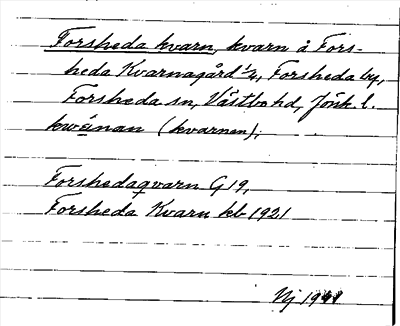 Forsheda kvarn, kvarn å Fors-
heda Kvarnagård 1/2, Forsheda by,
Forsheda sn, Västbo hd, Jönk. l.
kwánan (kvarnen),
Forshedaqvarn G 19,
Forsheda Kvarn kb 1921
Nj 1941